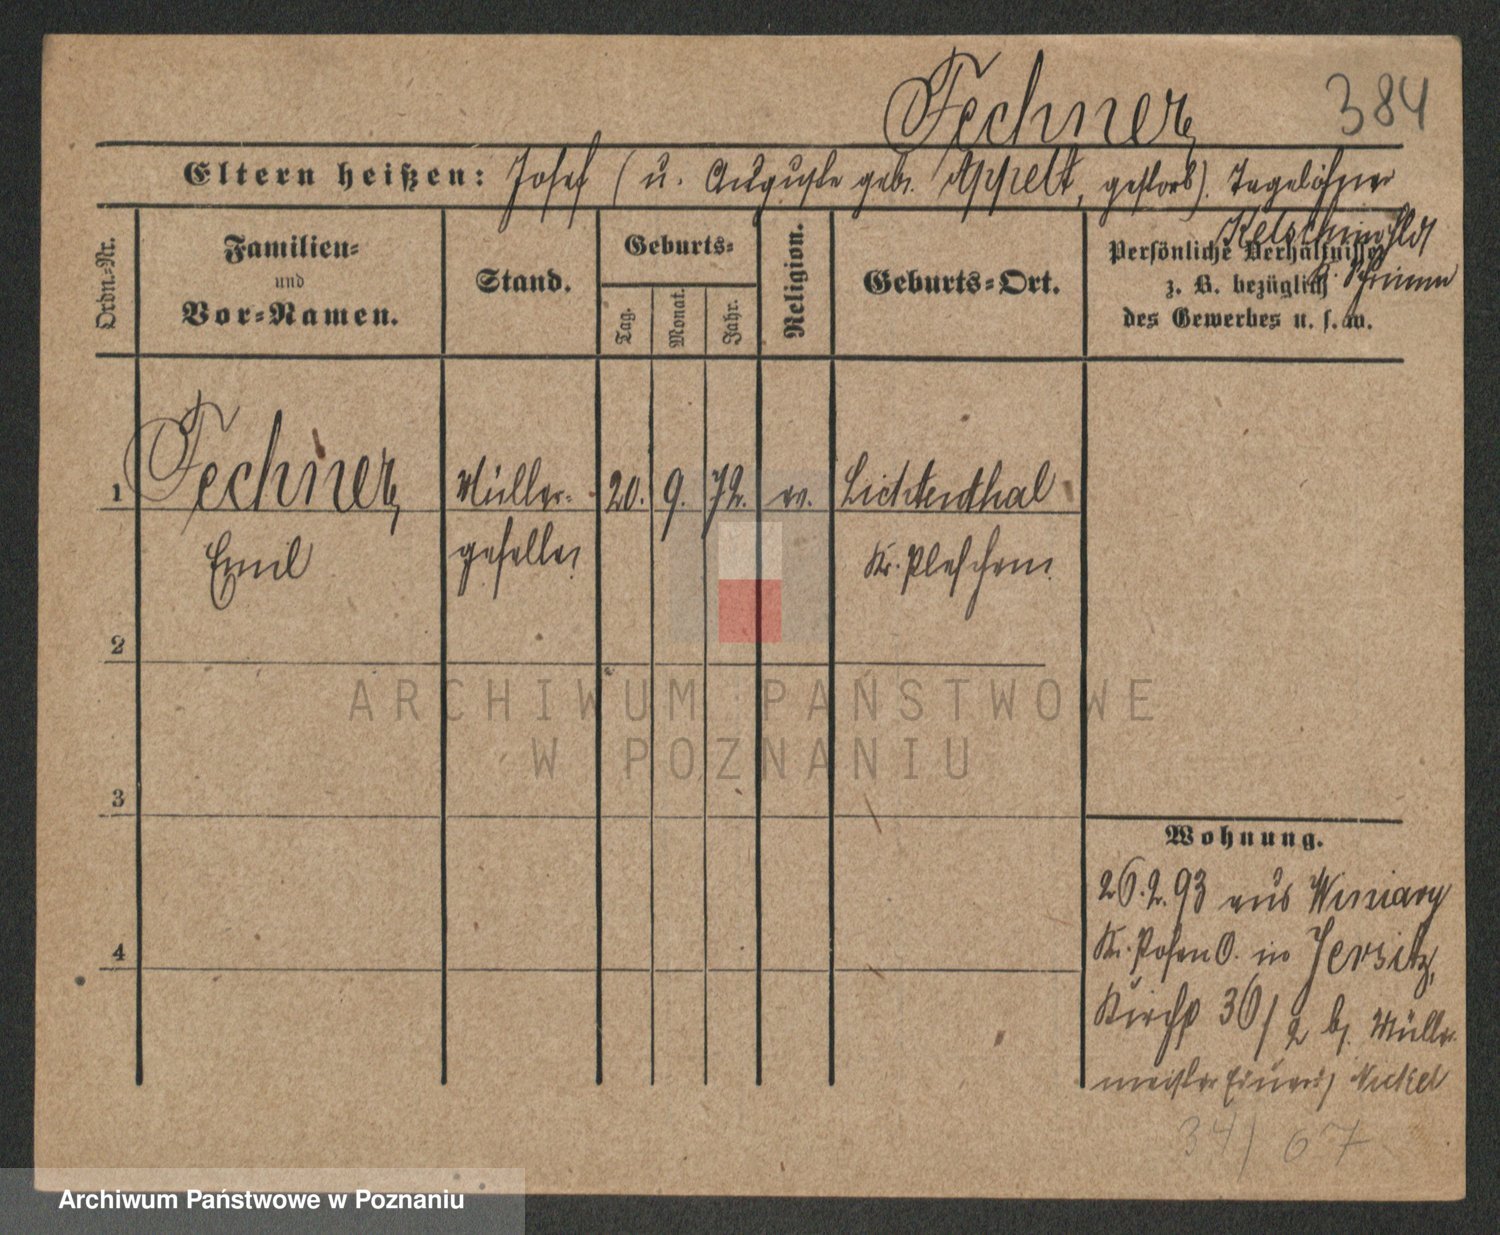 Fechner
384
Eltern heißen: Josef (u. Auguste geb. Appelt, gestorb). Tagelöhner
Ordn.-Nr.
Familien-
und
Vor-Namen.
Stand.
Geburts-
Tag.
Monat.
Jahr.
Religion.
Geburts-Ort.
Persönliche Verhältnisse
z. B. bezüglich
des Gewerbes u. s. w.
Schrimm
1 Fechner Müller- 20. 9. 72. ev. Lichtenthal
Emil geselle Kr. Pleschen
2
3
4
Wohnung.
26.2.93 aus Winiary
Kr. Posen O. in Jersitz,
Kirchst 36/2 b. Müller
meister Nickel
34/67
ARCHIWUM PAŃSTWOWE
W POZNANIU
Archiwum Państwowe w Poznaniu